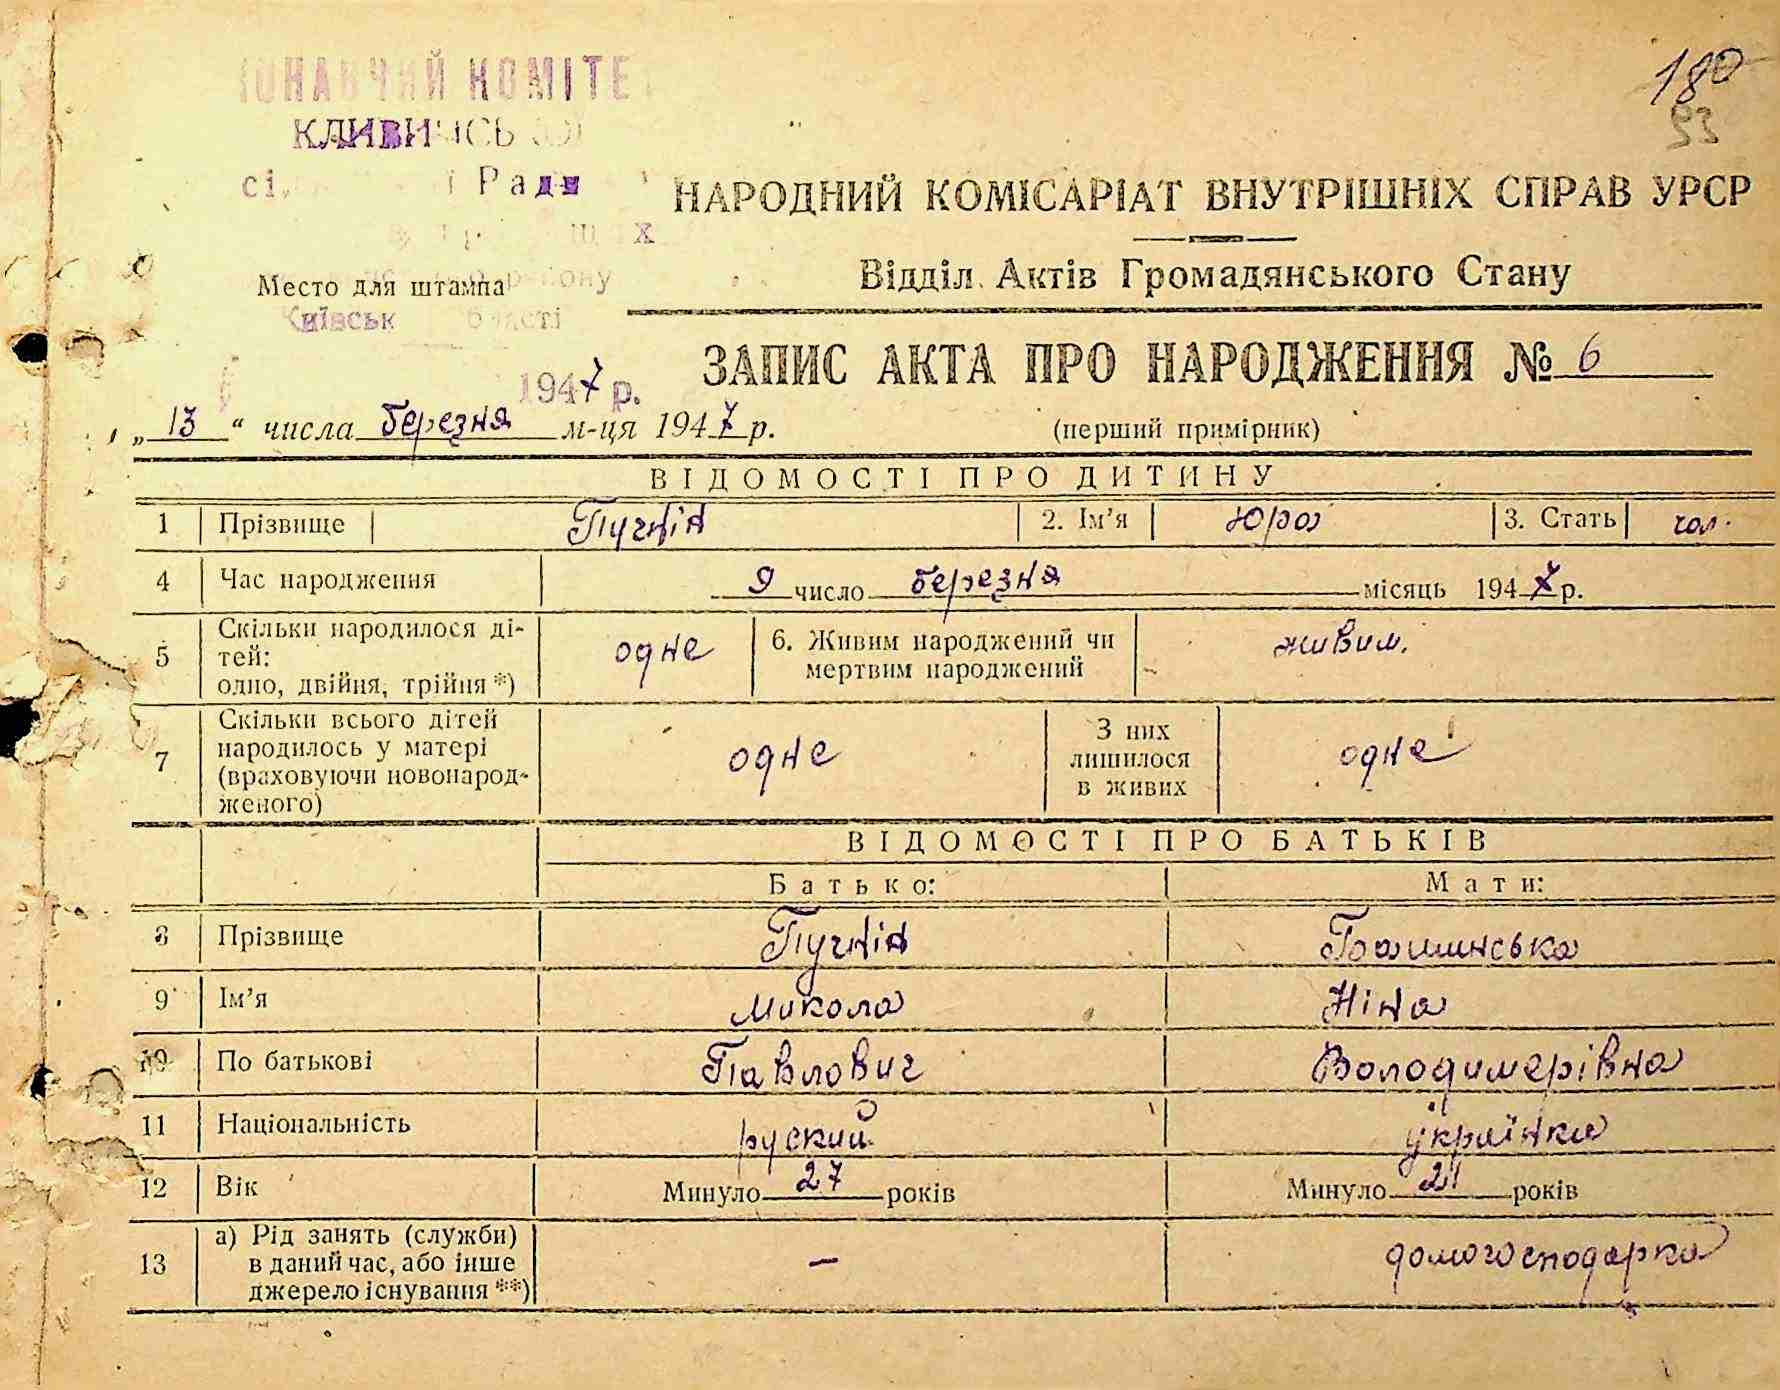 180
93
КОМІТЕ
Рад
НАРОДНИЙ КОМІСАРІАТ ВНУТРІШНІХ СПРАВ УРСР
Відділ Актів Громадянського Стану
Место для штампа
ЗАПИС АКТА ПРО НАРОДЖЕННЯ № 6
1947 р.
„13“ числа березня м-ця 1947 р.
(перший примірник)
ВІДОМОСТІ ПРО ДИТИНУ
1 Прізвище Пучнін 2. Ім’я Юра 3. Стать чол.
4 Час народження 9 число березня місяць 1947 р.
5 Скільки народилося ді-
тей:
одно, двійня, трійня *) одне 6. Живим народжений чи
мертвим народжений живим.
7 Скільки всього дітей
народилось у матері
(враховуючи новонарод-
женого) одне З них
лишилося
в живих одне
ВІДОМОСТІ ПРО БАТЬКІВ
Батько: Мати:
8 Прізвище Пучнін
9 Ім’я Микола Ніна
10 По батькові Павлович Володимерівна
11 Національність руский українка
12 Вік Минуло 27 років Минуло 21 років
13 а) Рід занять (служби)
в даний час, або інше
джерело існування **) — домогосподарка